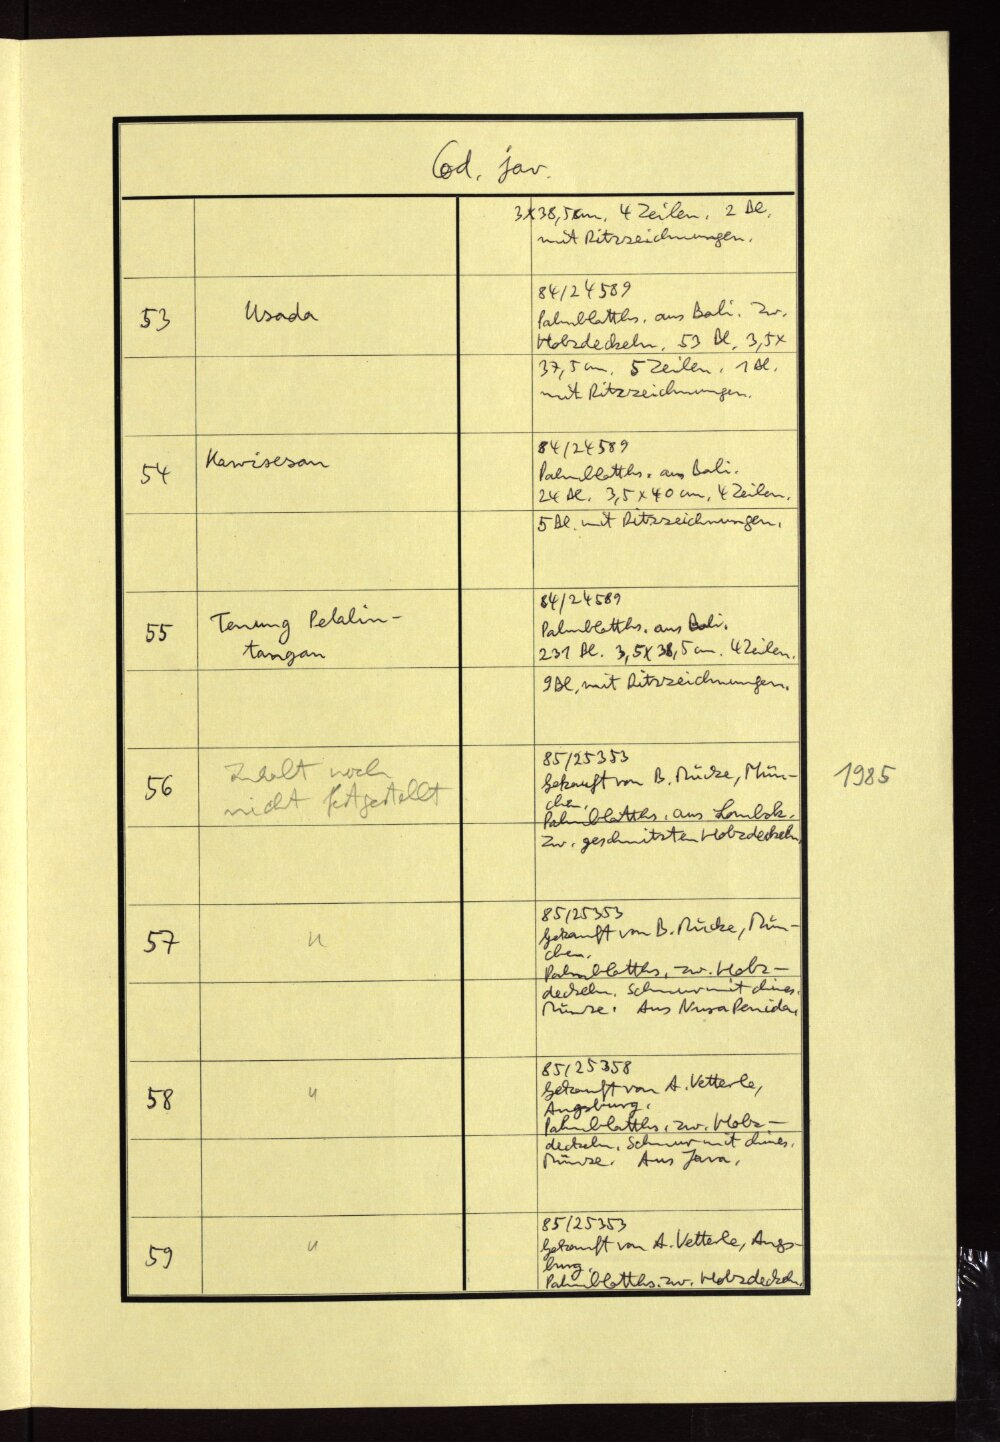 Cod. jav.
3x38,5cm, 4 Zeilen. 2 Bl.
mit Ritzzeichnungen.
53 Usada 84/24589
Palmblatths. aus Bali. Zw.
Holzdeckeln. 53 Bl. 3,5x
37,5cm. 5 Zeilen. 1 Bl.
mit Ritzzeichnungen.
54 Kawisesan 84/24589
Palmblatths. aus Bali.
24 Bl. 3,5x40cm, 4 Zeilen.
5 Bl. mit Ritzzeichnungen.
55 Tenung Pelalin-
tangan
84/24589
Palmblatths. aus Bali.
231 Bl. 3,5x38,5cm. 4 Zeilen.
9 Bl. mit Ritzzeichnungen.
56 Inhalt noch
nicht festgestellt
85/25353
Gekauft von B. Mücke, Mün-
chen.
Palmblatths. aus Lombok.
Zw. geschnitzten Holzdeckeln
1985
57 " 85/25353
Gekauft von B. Mücke, Mün-
chen.
Palmblatths. zw. Holz-
deckeln. Schnur mit chines.
Münze. Aus Nusa Penida.
58 " 85/25358
Gekauft von A. Vetterle,
Augsburg.
Palmblatths. zw. Holz-
deckeln. Schnur mit chines.
Münze. Aus Java.
59 " 85/25353
Gekauft von A. Vetterle, Augs-
burg.
Palmblatths. zw. Holzdeckeln.